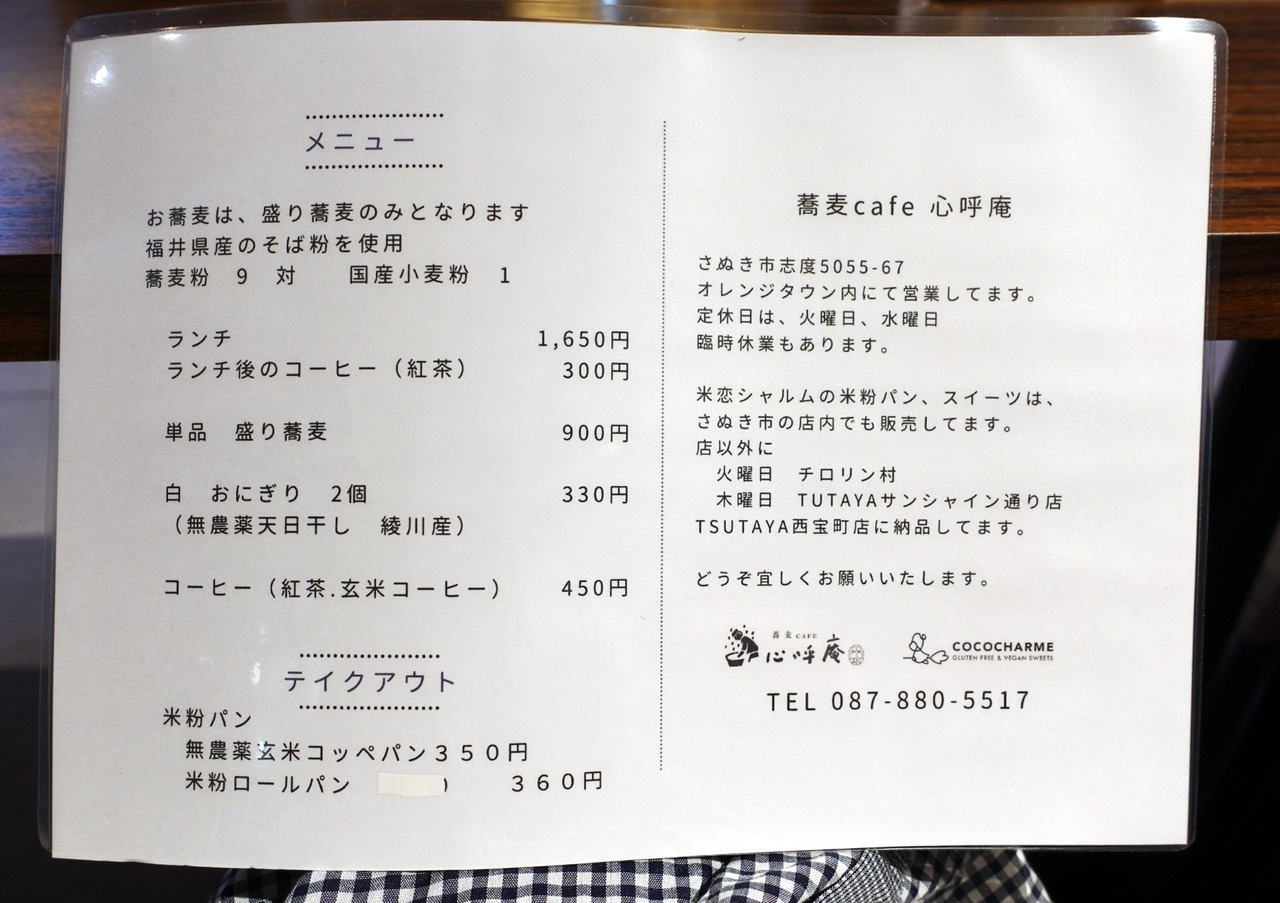 メニュー
お蕎麦は、盛り蕎麦のみとなります
福井県産のそば粉を使用
蕎麦粉　9　対　　国産小麦粉　1
ランチ　1,650円
ランチ後のコーヒー（紅茶）　300円
単品　盛り蕎麦　900円
白　おにぎり　2個　330円
（無農薬天日干し　綾川産）
コーヒー（紅茶.玄米コーヒー）　450円
テイクアウト
米粉パン
無農薬玄米コッペパン３５０円
米粉ロールパン　）　３６０円
蕎麦cafe 心呼庵
さぬき市志度5055-67
オレンジタウン内にて営業してます。
定休日は、火曜日、水曜日
臨時休業もあります。
米恋シャルムの米粉パン、スイーツは、
さぬき市の店内でも販売してます。
店以外に
火曜日　チロリン村
木曜日　TUTAYAサンシャイン通り店
TSUTAYA西宝町店に納品してます。
どうぞ宜しくお願いいたします。
蕎麦CAFE
心呼庵
COCOCHARME
GLUTEN FREE & VEGAN SWEETS
TEL 087-880-5517